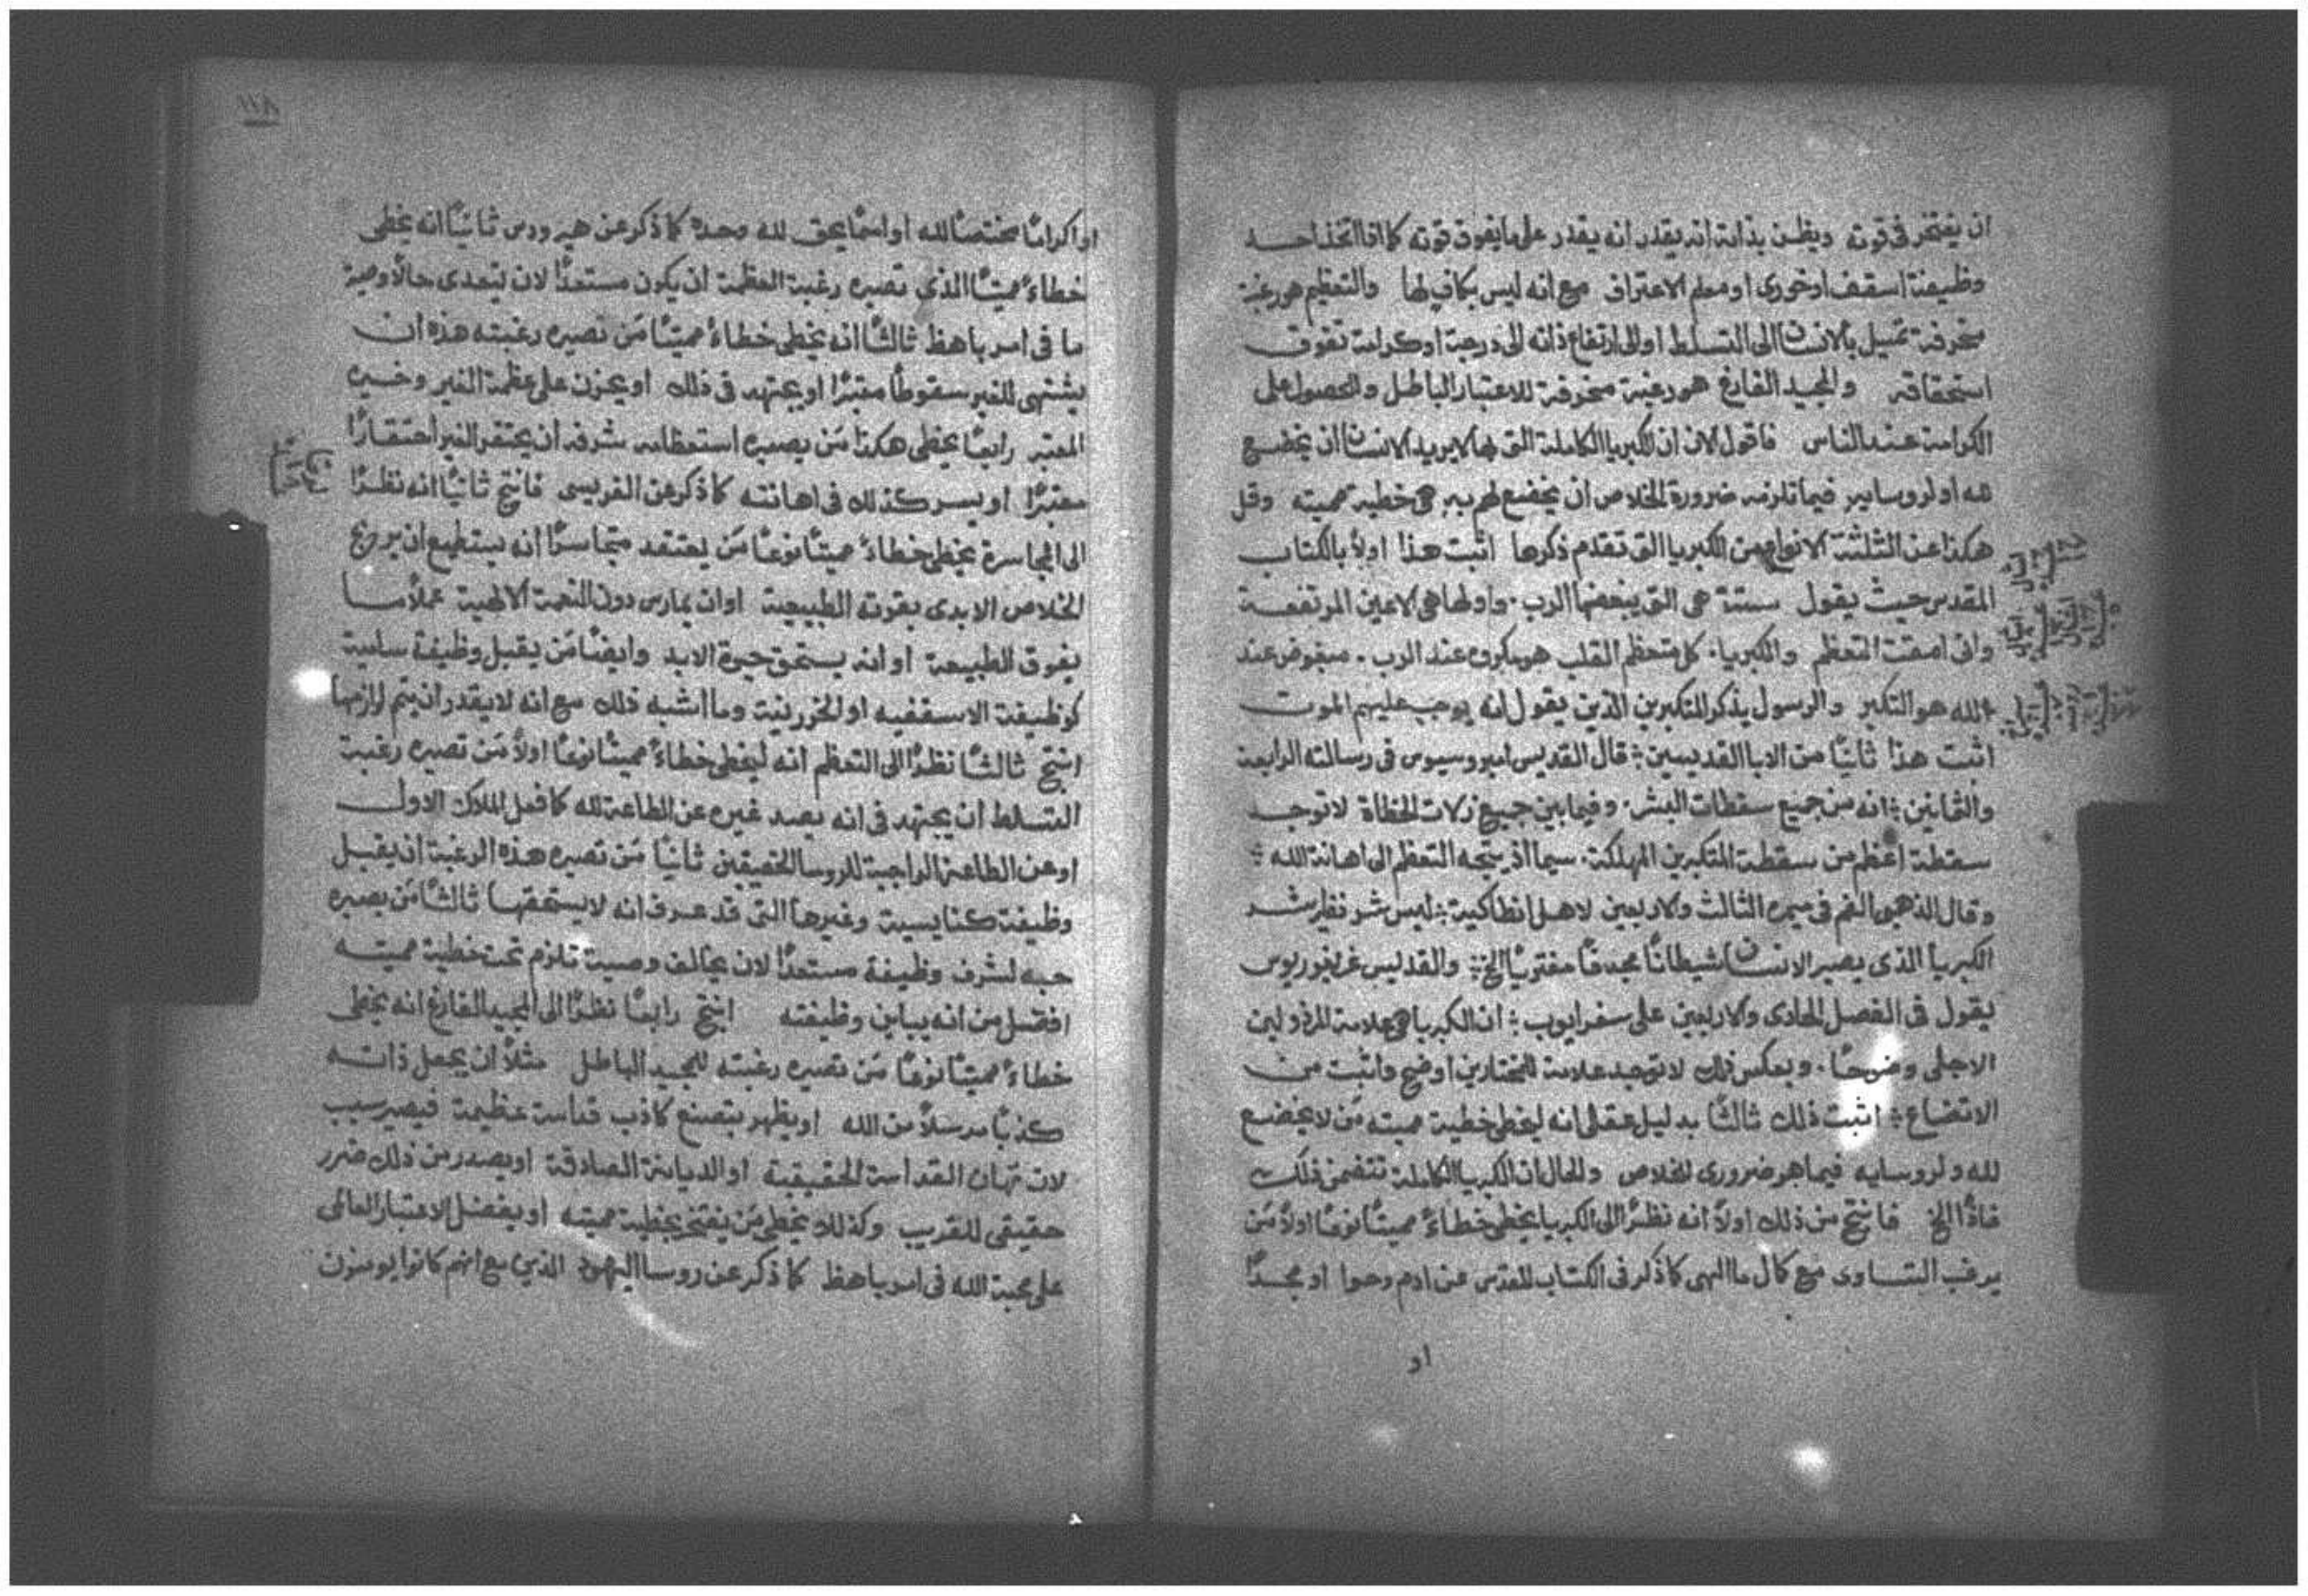 ان يفتخر في قوته ويظن بذاته انه يقدر انه يقدر على ما يفوق قوته كما اذا اتخذ احد
وظيفة اسقف او خوري او معلم الاعتراف مع انه ليس بكافٍ لها والتعظم هو رغبة
منحرفة تميل بالانسان الى التسلط او الى ارتفاع ذاته الى درجة او كرامة تفوق
استحقاقه والمجيد الفارغ هو رغبة منحرفة للاعتبار الباطل والحصول على
الكرامة عند الناس فاقول الان ان الكبريا الكاملة التي بها لا يريد الانسان ان يخضع
لله او لروسايه فيما تلزمه ضرورة الخلاص ان يخضع لهم به هي خطية مميتة وقل
هكذا عن الثلثة الانواع من الكبريا التي تقدم ذكرها اثبت هذا اولاً بالكتاب
المقدس حيث يقول ستة هي التي يبغضها الرب. واولها هي الاعين المرتفعة
واني امقت التعظم والكبرياء. كل متعظم القلب هو مكروه عند الرب. مبغوض عند
الله هو التكبر والرسول يذكر المتكبرين الذين يقول انه يوجب عليهم الموت
اثبت هذا ثانيًا من الابا القديسين: قال القديس امبروسيوس في رسالته الرابعة
والثمانين: انه من جميع سقطات البشر. وفيما بين جميع زلات الخطاة لا توجد
سقطة اعظم من سقطة المتكبرين المهلكة. سيما اذ يتجه التعظم الى اهانة الله:
وقال الذهبي الفم في ميمره الثالث والاربعين لاهل انطاكية: ليس شر نظير شر
الكبريا الذي يصير الانسان شيطانًا مجدفًا مفتريًا الخ: والقديس غريغوريوس
يقول في الفصل الحادي والاربعين على سفر ايوب: ان الكبريا هي علامة المرذولين
الاجلى وضوحًا. وبعكس ذلك لا توجد علامة للمختارين اوضح واثبت من
الاتضاع: اثبت ذلك ثالثًا بدليل عقلي انه ليخطي خطية مميته مَن لا يخضع
لله ولروسايه فيما هو ضروري للخلاص والحال ان الكبريا الكاملة تتضمن ذلك
فاذًا الخ فانتج من ذلك اولاً انه نظرًا الى الكبريا يخطي خطاءً مميتًا نوعًا اولاً مَن
يرغب التساوي مع كمال ما الهي كما ذكر في الكتاب المقدس عن ادم وحوا او مجدًا
او
١١٨
او اكرامًا مختصًا لله او اسمًا يحق لله وحده كما ذكر عن هيرودس ثانيًا انه يخطي
خطاءً مميتًا الذي تصيره رغبة العظمة ان يكون مستعدًا لان يتعدى حالاً وصية
ما في امر باهظ ثالثًا انه يخطي خطاءً مميتًا مَن تصيره رغبته هذه ان
يشتهي للغير سقوطًا معتبرًا او يجتهد في ذلك او يحزن على عظمة الغير وخيره
المعتبر رابعًا يخطي هكذا مَن يصيره استعظامه شرفه ان يحتقر الغير احتقارًا
معتبرًا او يسر كذلك في اهانته كما ذكر عن الفريسي فانتج ثانيًا انه نظرًا
الى المجاسرة يخطي خطاءً مميتًا نوعًا مَن يعتقد متجاسرًا انه يستطيع ان يربح
الخلاص الابدي بقوته الطبيعية او ان يمارس دون النعمة الالهية عملاً ما
يفوق الطبيعة او انه يستحق حيوة الابد وايضًا مَن يقبل وظيفة سامية
كوظيفة الاسقفيه او الخورنية وما اشبه ذلك مع انه لا يقدر ان يتم لوازمها
انتج ثالثًا نظرًا الى التعظم انه ليخطي خطاءً مميتًا نوعًا اولاً مَن تصيره رغبة
التسلط ان يجتهد في انه يصد غيره عن الطاعة لله كما فعل الملاك الاول
او عن الطاعة الواجبة للروسا الحقيقين ثانيًا مَن تصيره هذه الرغبة ان يقبل
وظيفة كنايسية وغيرها التي قد عرف انه لا يستحقها ثالثًا مَن يصيره
حبه لشرف وظيفة مستعدًا لان يخالف وصية تلزم تحت خطية مميته
افضل من انه يباين وظيفته انتج رابعًا نظرًا الى المجيد الفارغ انه يخطي
خطاءً مميتًا نوعًا مَن تصيره رغبته للمجيد الباطل مثلاً ان يجعل ذاته
كذبًا مرسلاً من الله او يظهر بتصنع كاذب قداسة عظيمة فيصير سبب
لان تهان القداسة الحقيقية او الديانة الصادقة او يصدر من ذلك ضرر
حقيقي للقريب وكذلك يخطي مَن يفتخر بخطية مميته او يفضل الاعتبار العالمي
على محبة الله في امر باهظ كما ذكر عن روسا اليهود الذين مع انهم كانوا يومنون